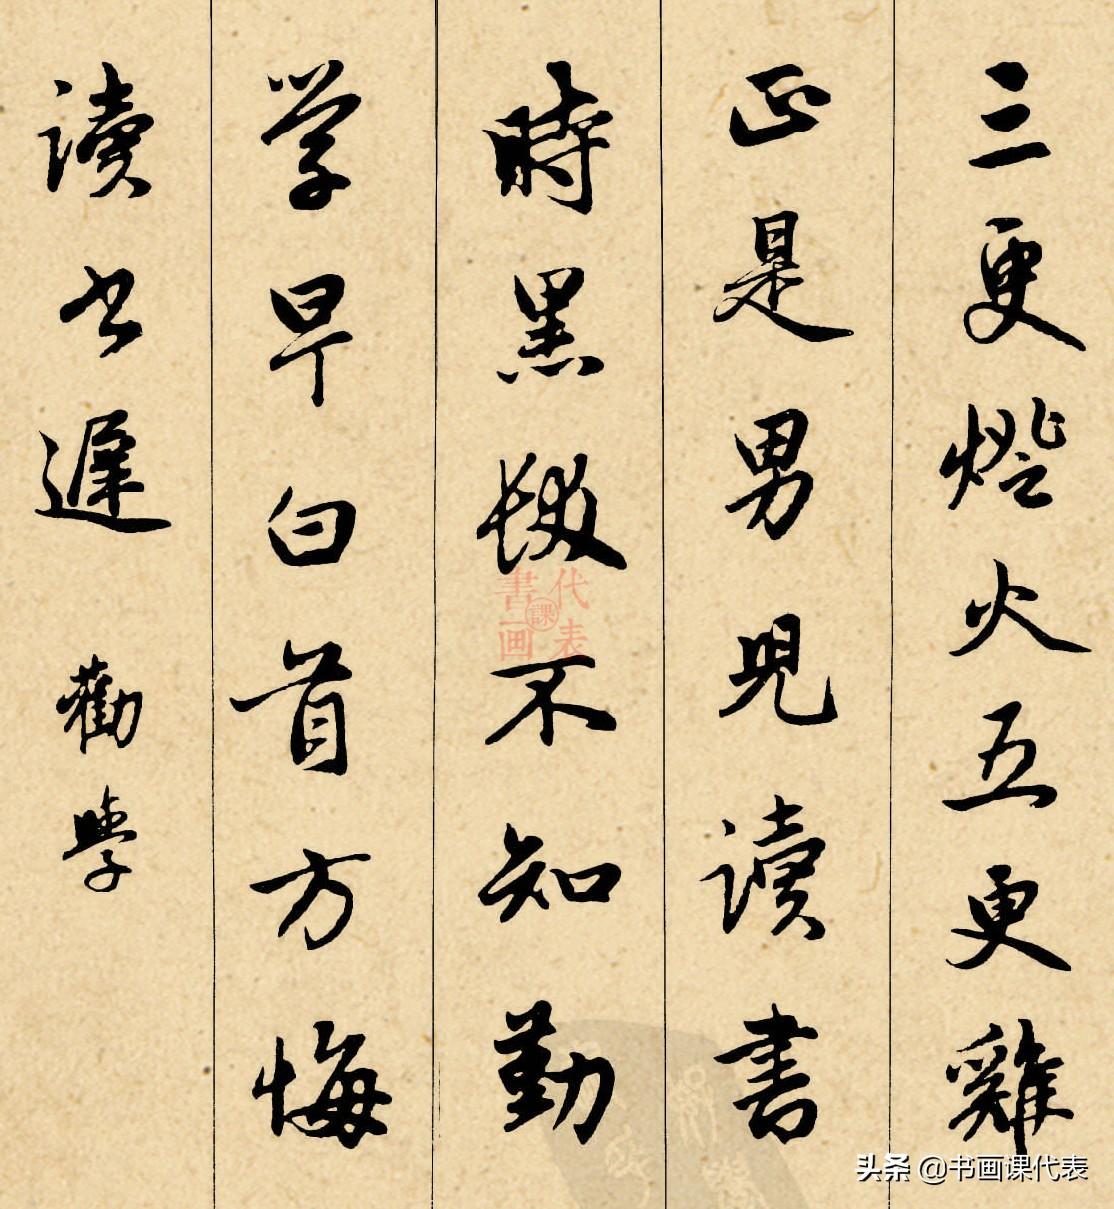 三更燈火五更雞
正是男児讀書
時黑髮不知勤
学早白首方悔
讀书遲 勸學
代表
書画
課
头条 @书画课代表